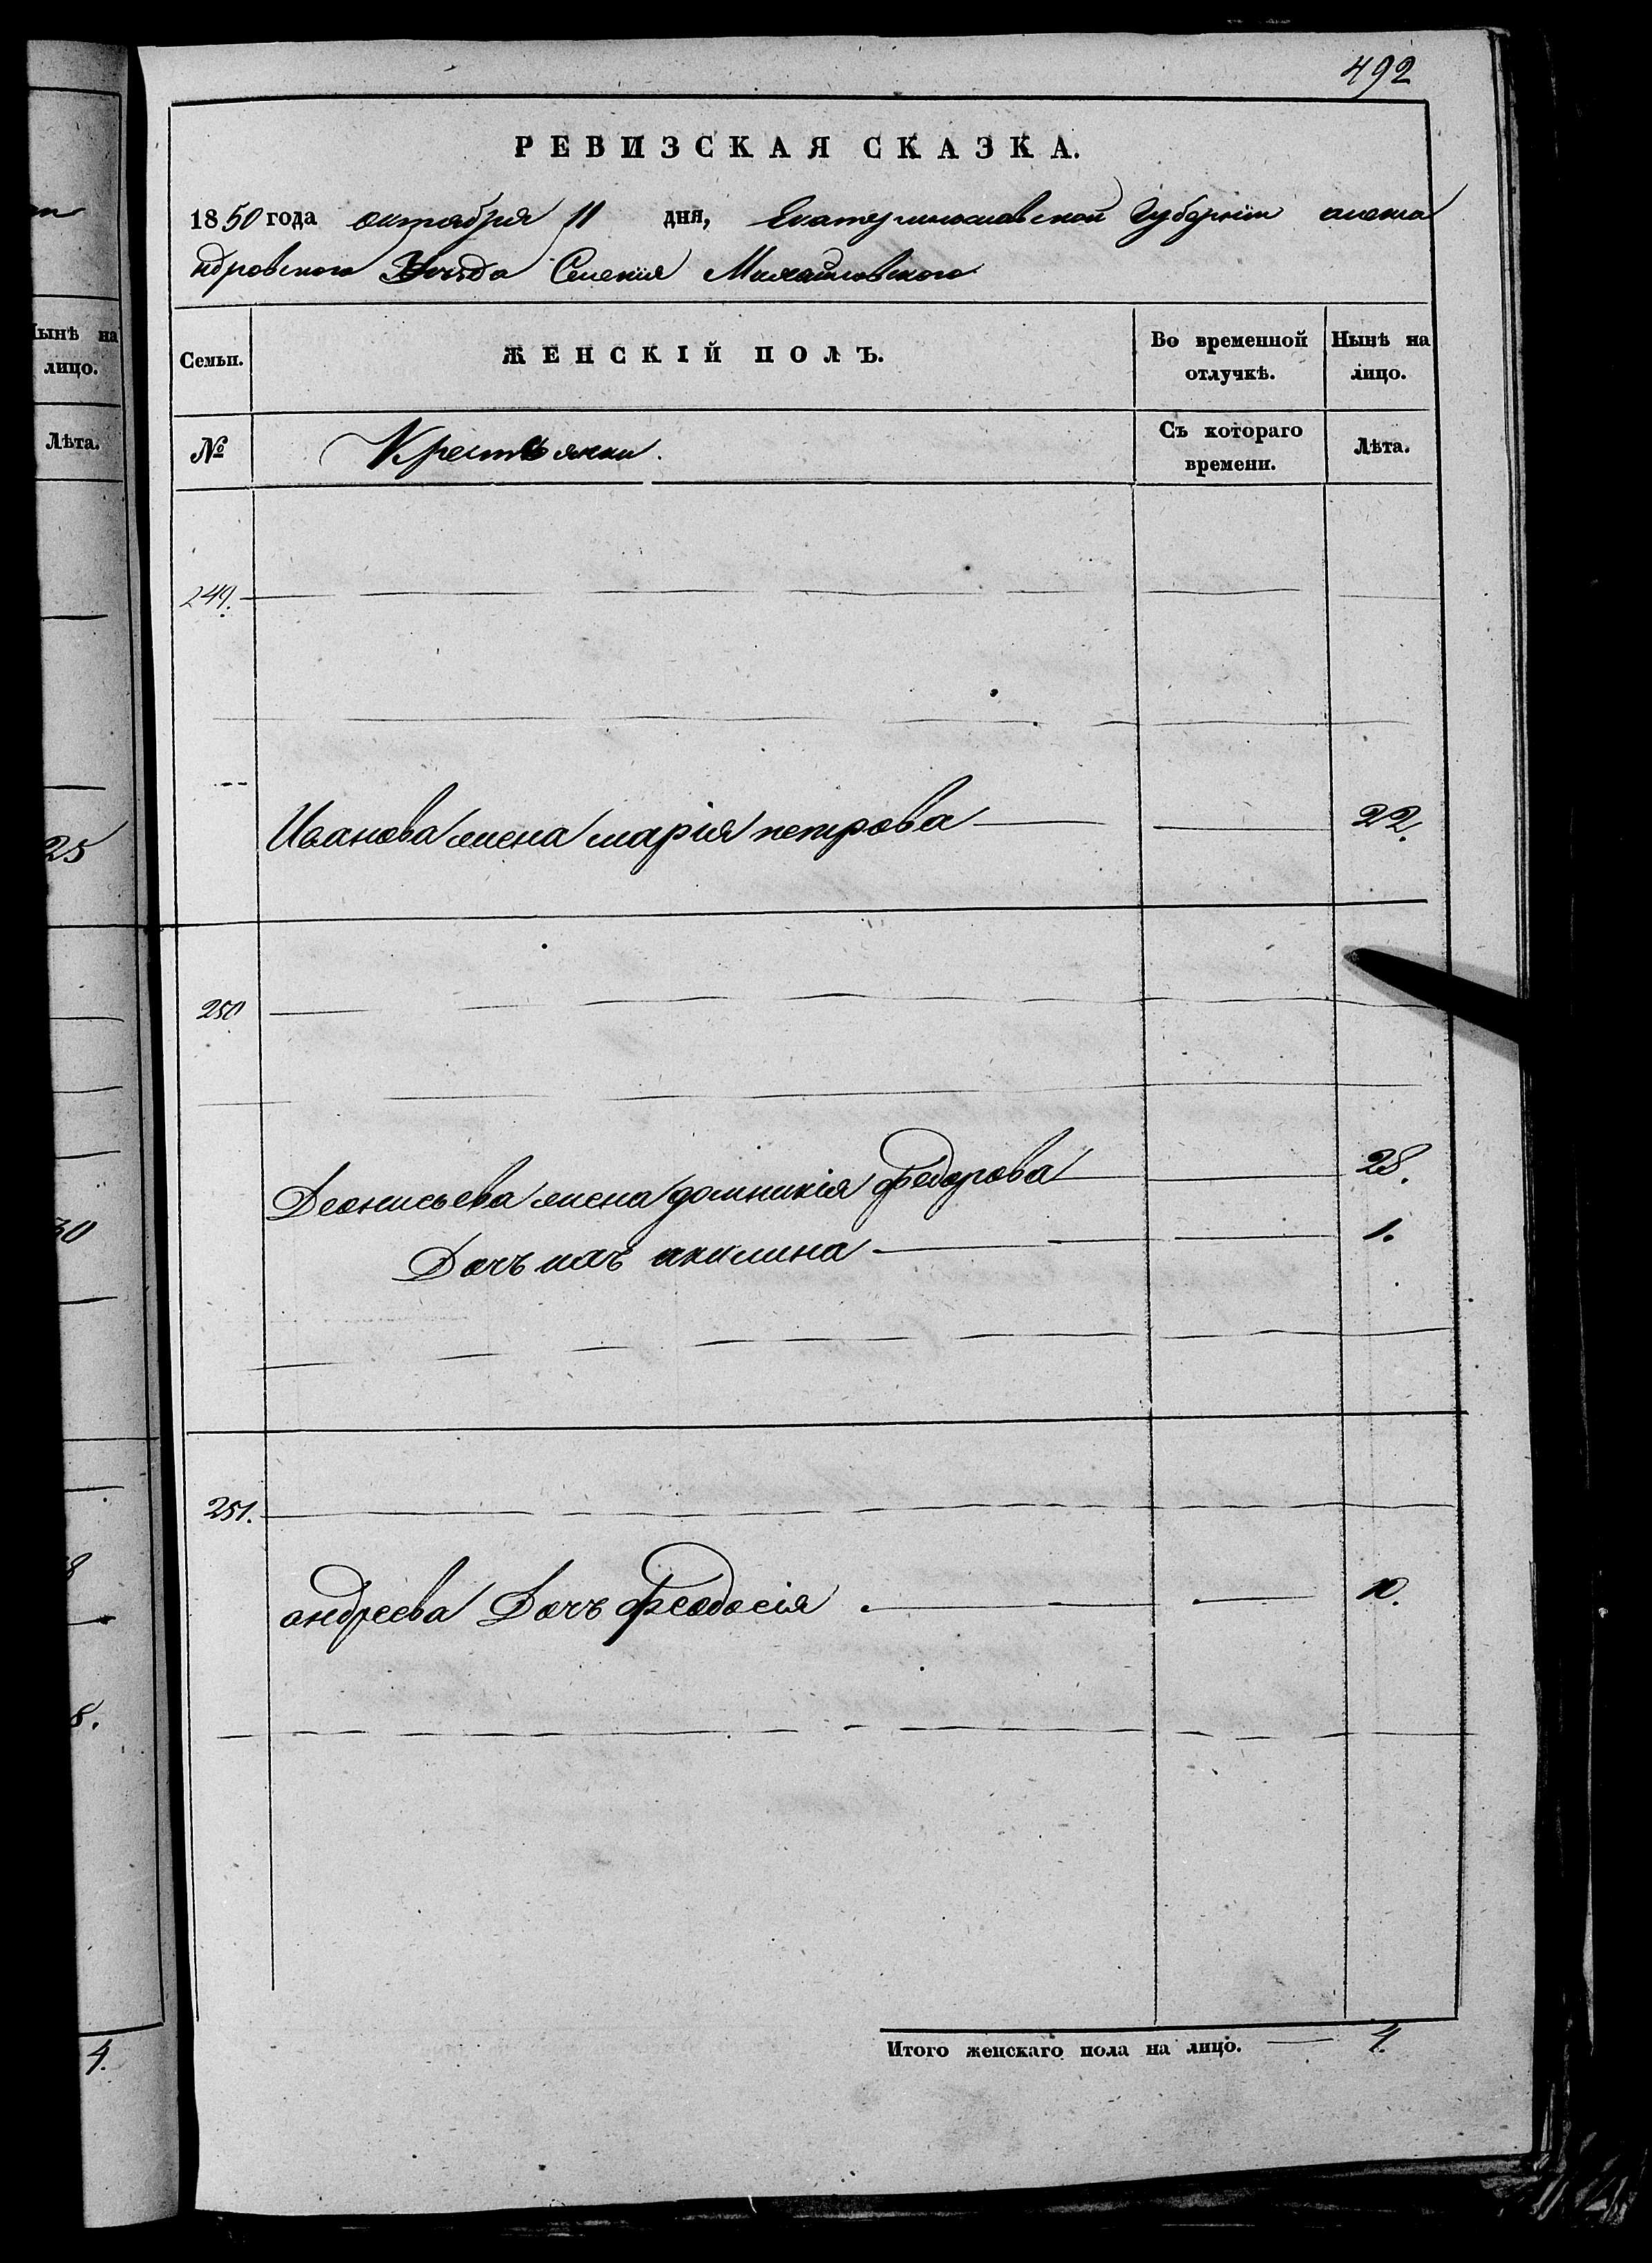 492
РЕВИЗСКАЯ СКАЗКА.
1850 года октября 11 дня, Екатеринославской Губернiи алекса
ндровского Уѣзда Селенiя Михайловского
Нынѣ на
лицо.
Лѣта.
25
30
8
8.
4.
Семьи.
ЖЕНСКІЙ ПОЛЪ.
Во временной
отлучкѣ.
Нынѣ на
лицо.
№
Крестьянки.
Съ котораго
времени.
Лѣта.
249.
Иванова жена марія петрова 22.
250
Деонисьева жена домникія федорова 28.
Дочь ихъ акилина 1.
251.
андреева Дочь Феодосія 10.
Итого женскаго пола на лицо. 4.